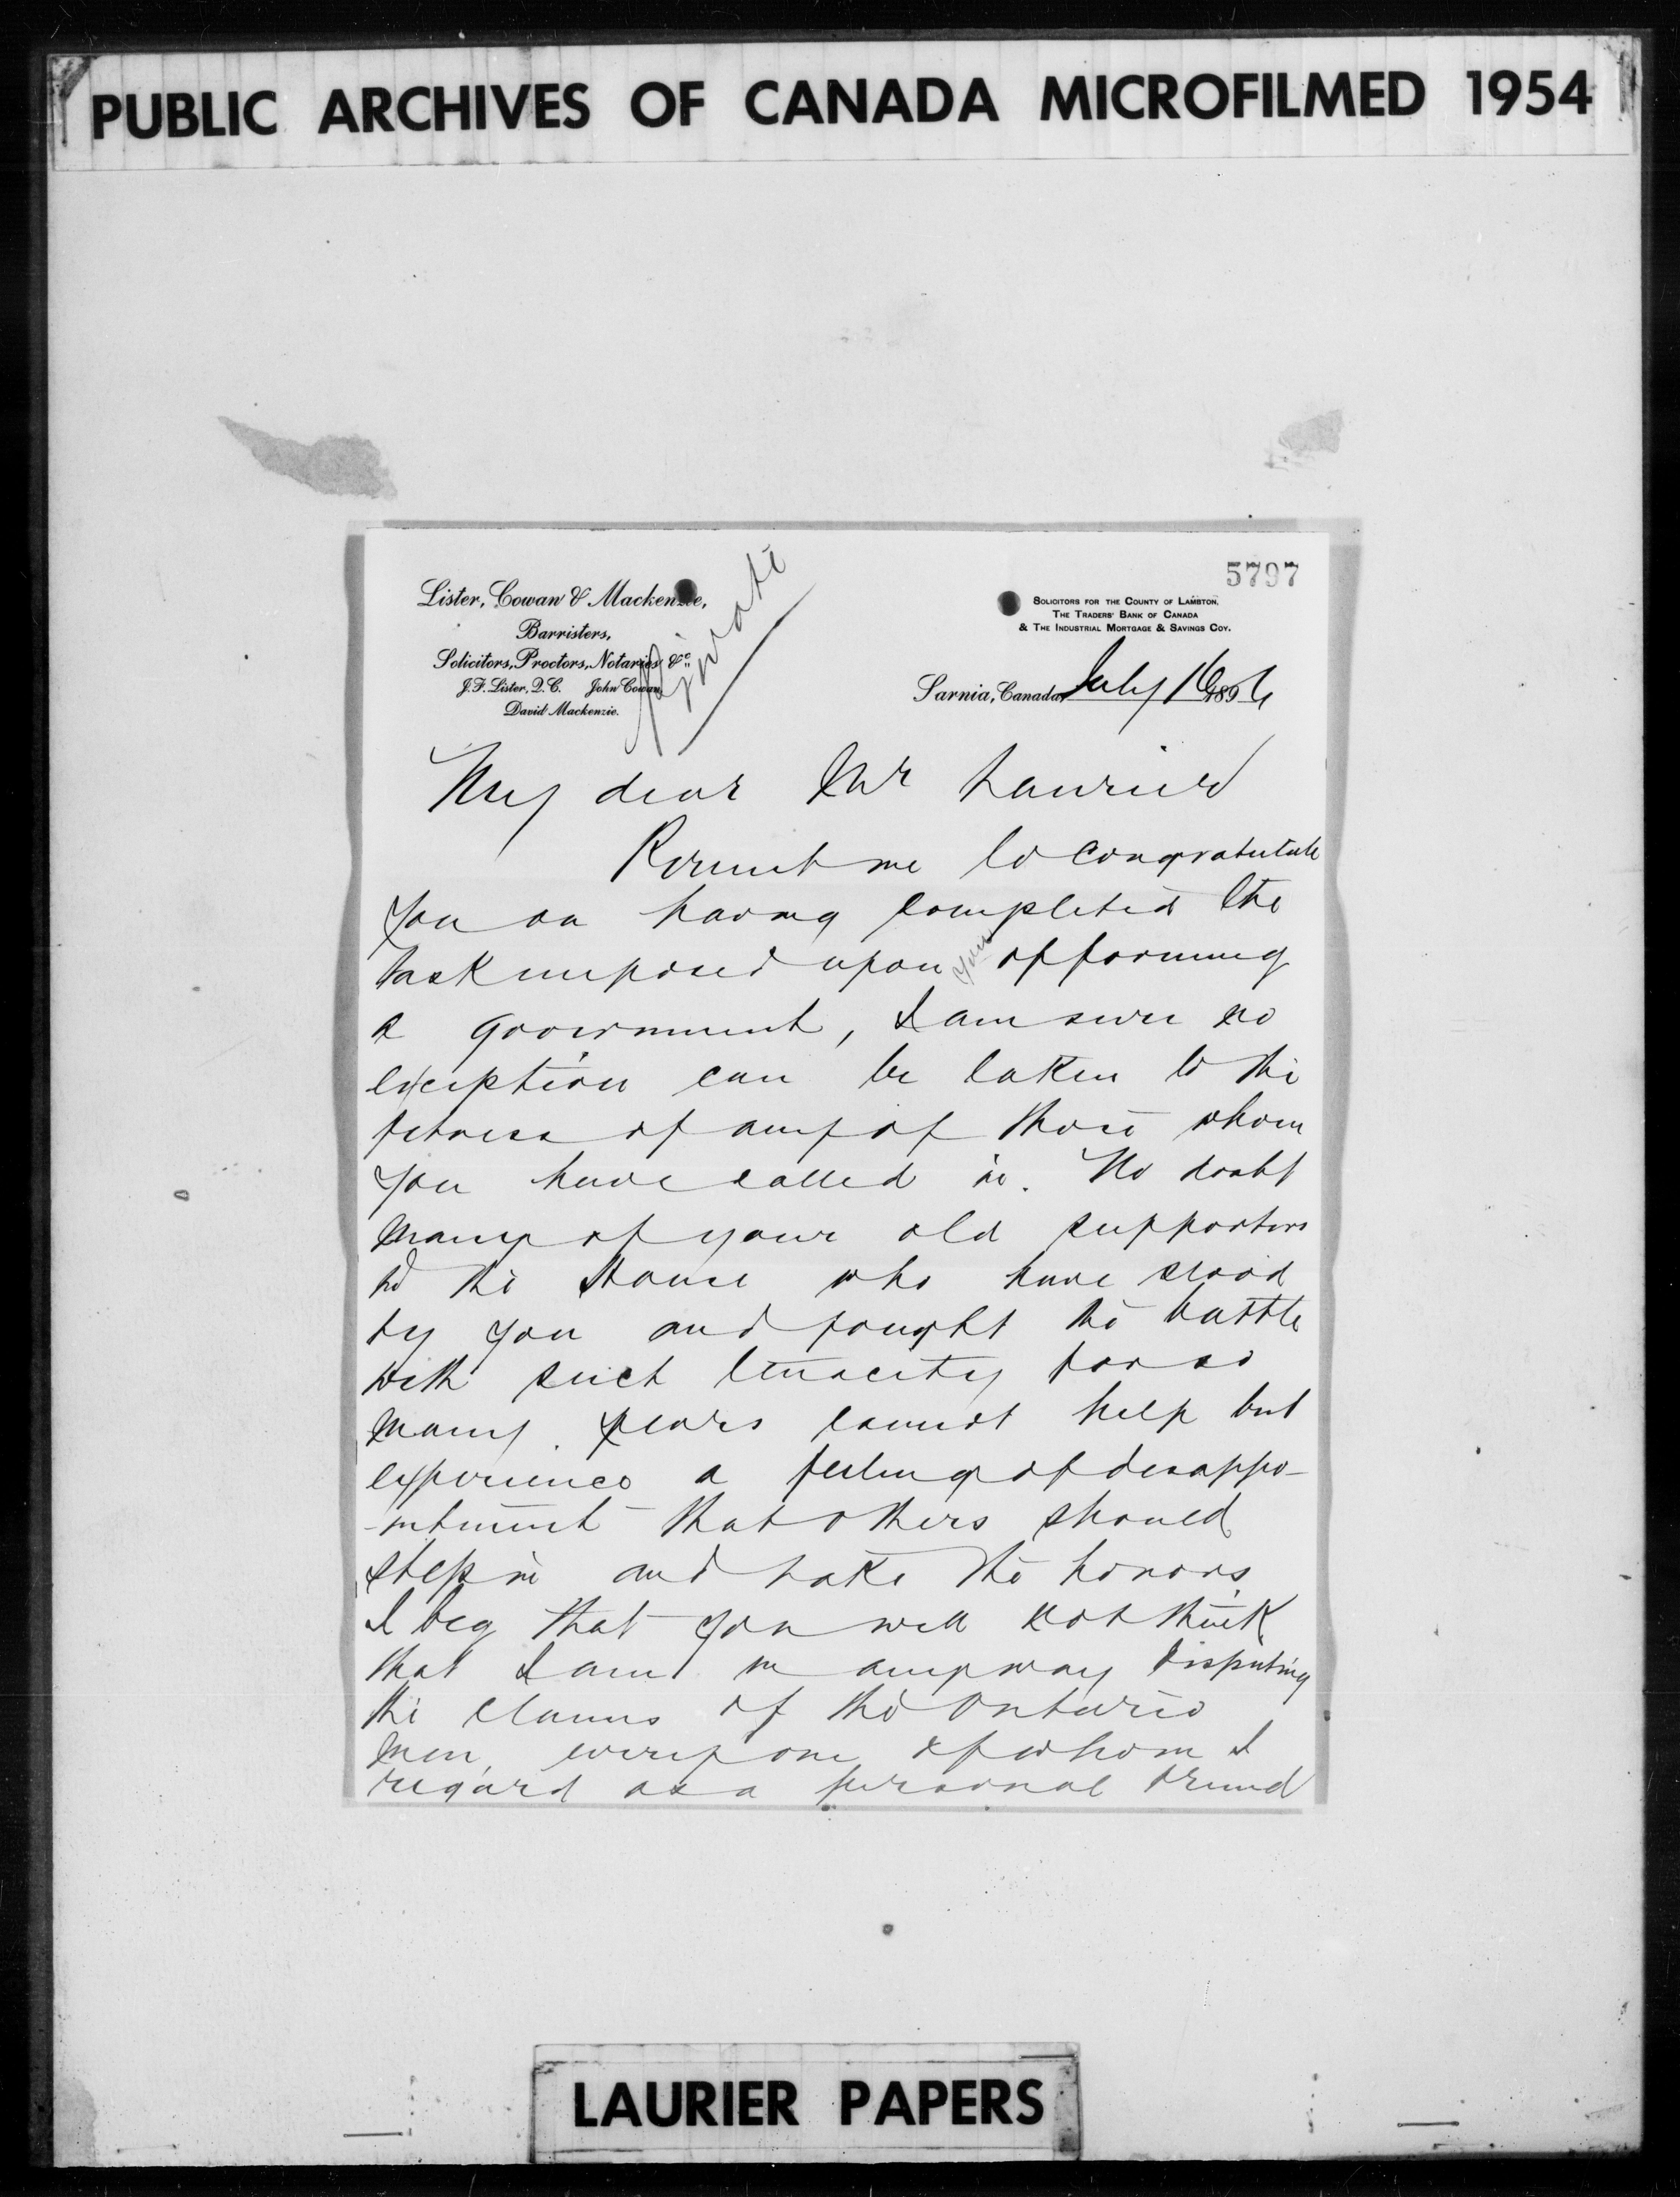 PUBLIC ARCHIVES OF CANADA MICROFILMED 1954
5797
Lister, Cowan & Mackenzie,
Barristers,
Solicitors, Proctors, Notaries &c
J.F. Lister, Q.C. John Cowan,
David Mackenzie.
Private
SOLICITORS FOR THE COUNTY OF LAMBTON,
THE TRADERS' BANK OF CANADA
& THE INDUSTRIAL MORTGAGE & SAVINGS COY.
Sarnia, Canada, July 16 1896
My dear Mr Laurier
Permit me to congratulate
you on having completed the
task imposed upon you of forming
a government, I am sure no
exception can be taken to the
fitness of any of those whom
you have called in. No doubt
many of your old supporters
in the House who have stood
by you and fought the battle
with such tenacity for so
many years cannot help but
experience a feeling of disappo-
-intment that others should
step in and take the honors
I beg that you will not think
that I am in anyway disputing
the claims of the Ontario
men, everyone of whom I
regard as a personal friend
LAURIER PAPERS